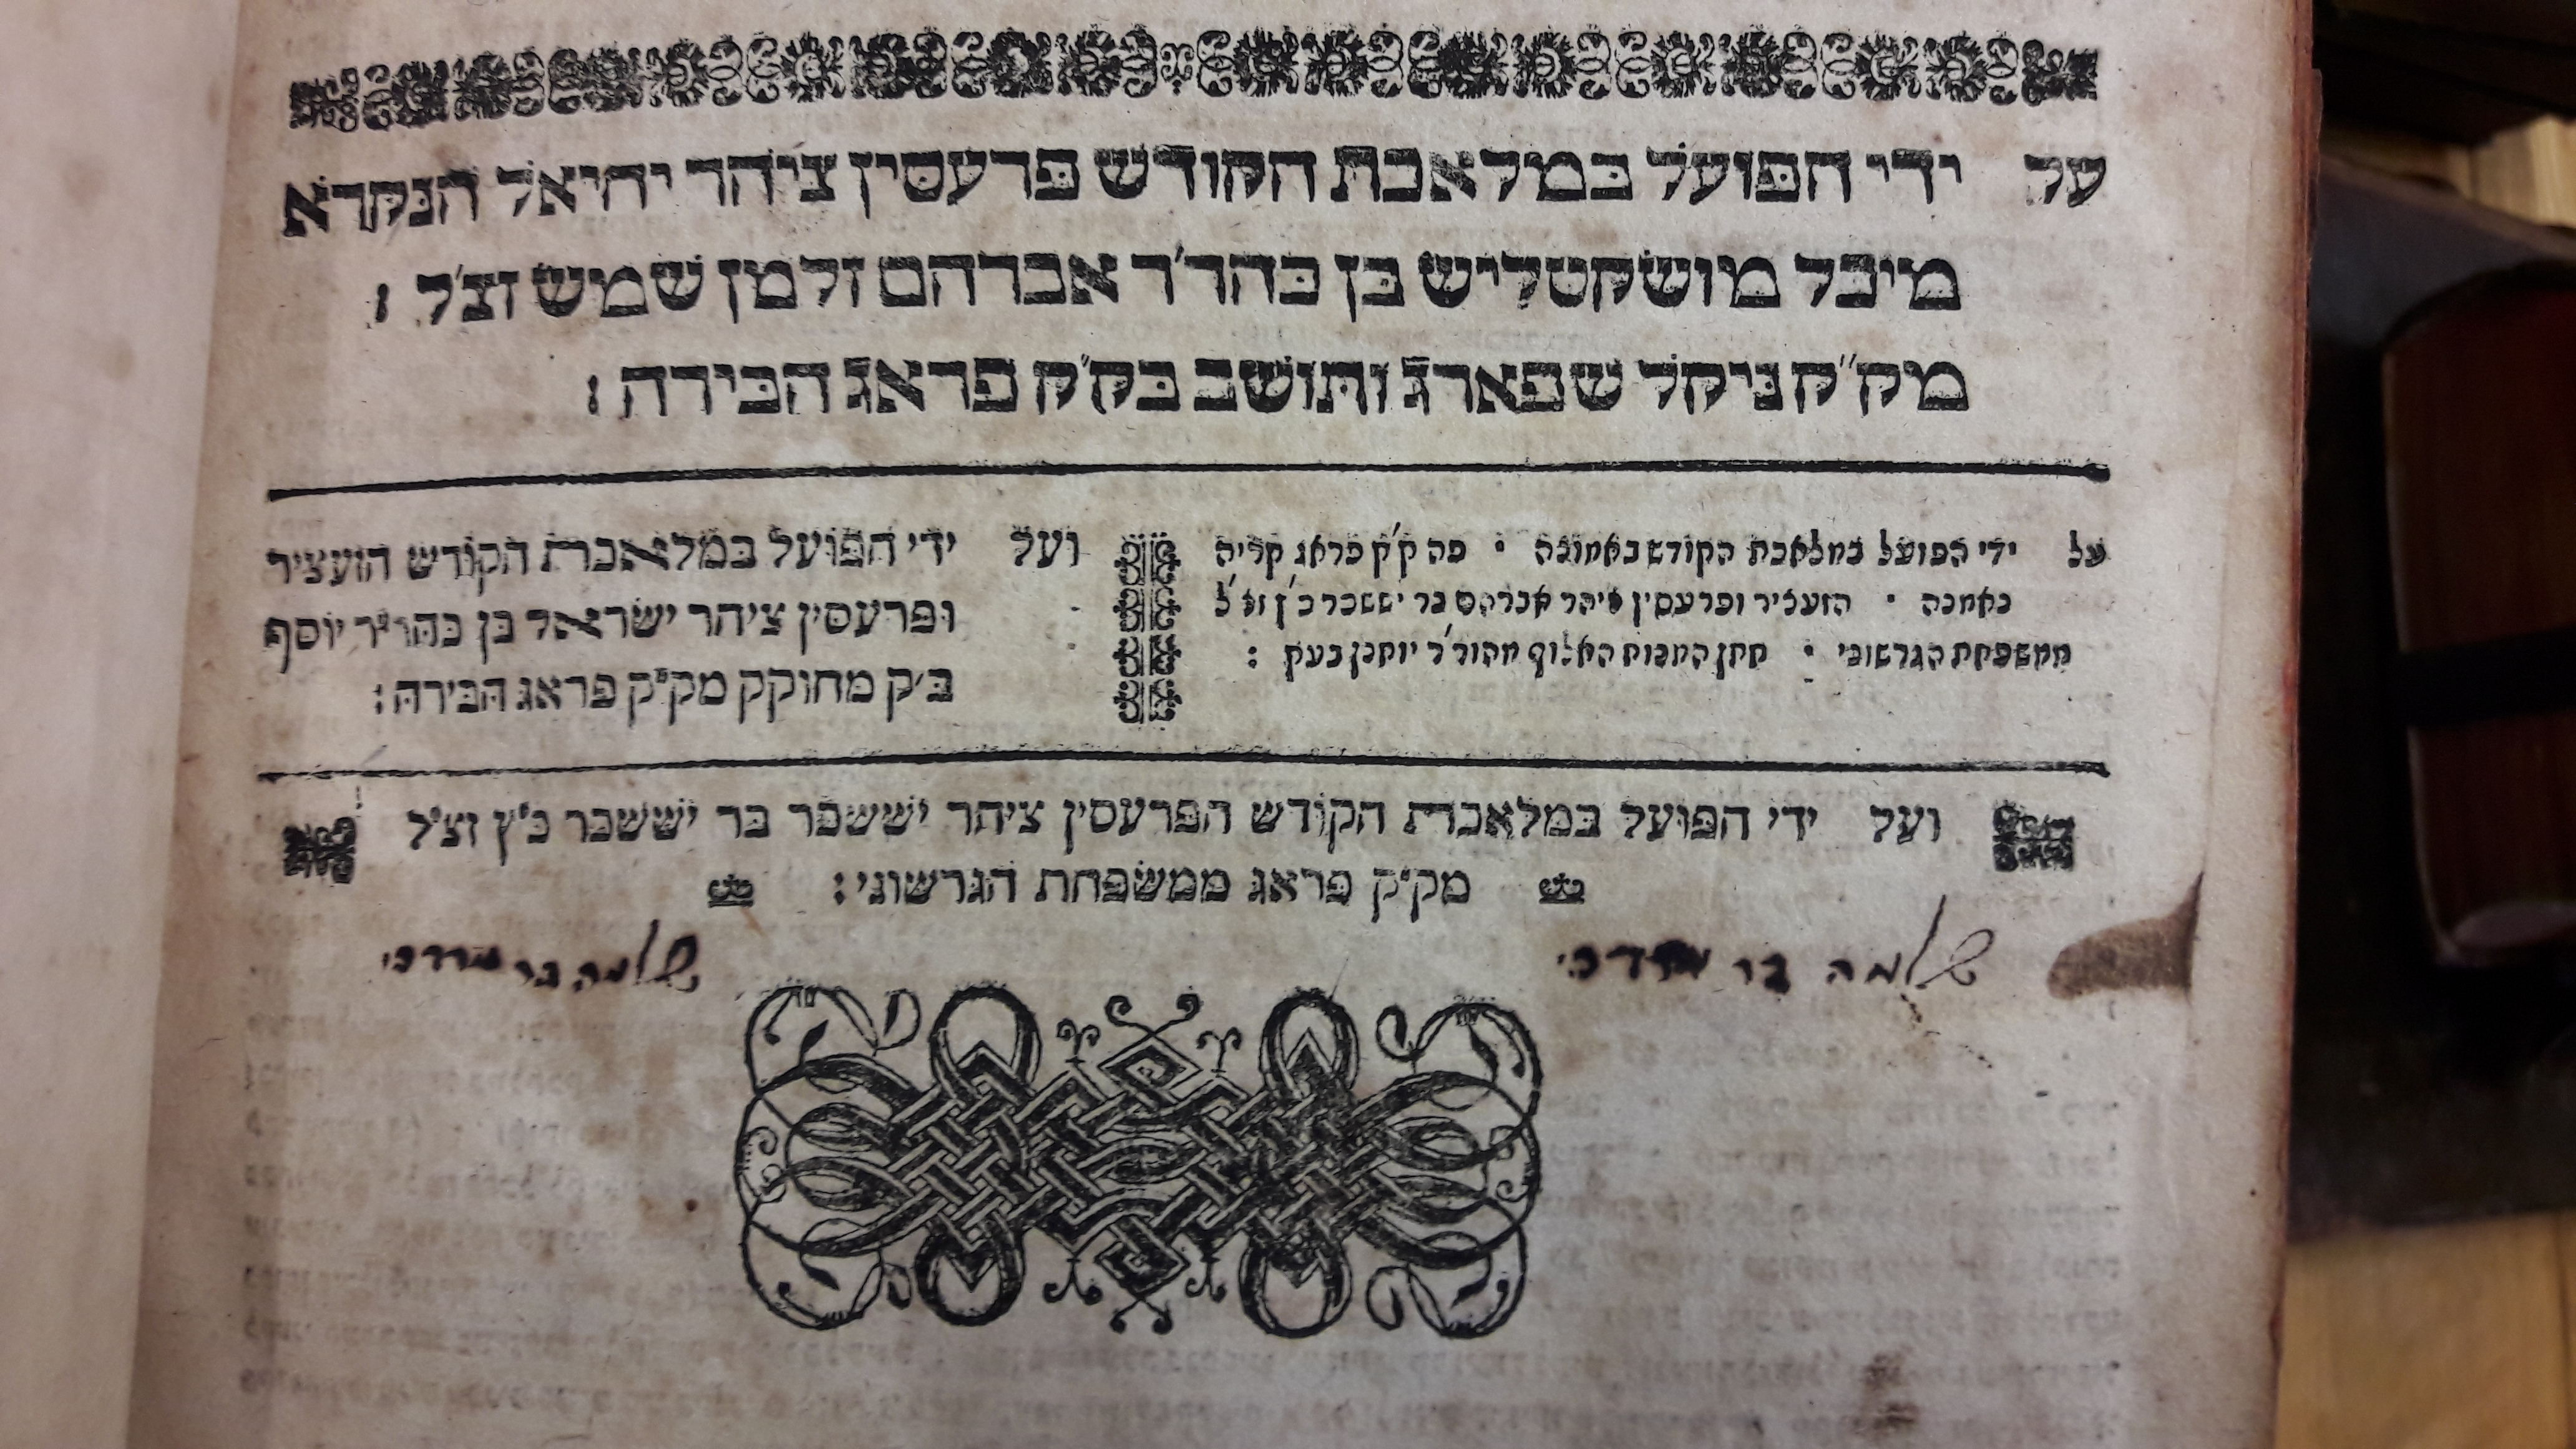 על ידי הפועל במלאכת הקודש פרעסין ציהר יחיאל הנקרא
מיכל מושקטליש בן כהר״ר אברהם זלמן שמש זצ״ל :
מק״ק ניקל שפארג ותושב בק״ק פראג הבירה :
על ידי הפועל במלאכת הקודש באמונה • פה ק״ק פראג קריה
נאמנה • הזעציר ופרעסין ציהר אברהם בר יששכר כ״ץ זצ״ל
ממשפחת הגרשוני • חתן המנוח האלוף מהור״ר יוחנן בעק :
ועל ידי הפועל במלאכת הקודש הזעציר
ופרעסין ציהר ישראל בן כהר״ר יוסף
ב״ק מחוקק מק״ק פראג הבירה :
ועל ידי הפועל במלאכת הקודש הפרעסין ציהר יששכר בר יששכר כ״ץ זצ״ל
מק״ק פראג ממשפחת הגרשוני :
שלמה בר מרדכי
שלמה בר מרדכי